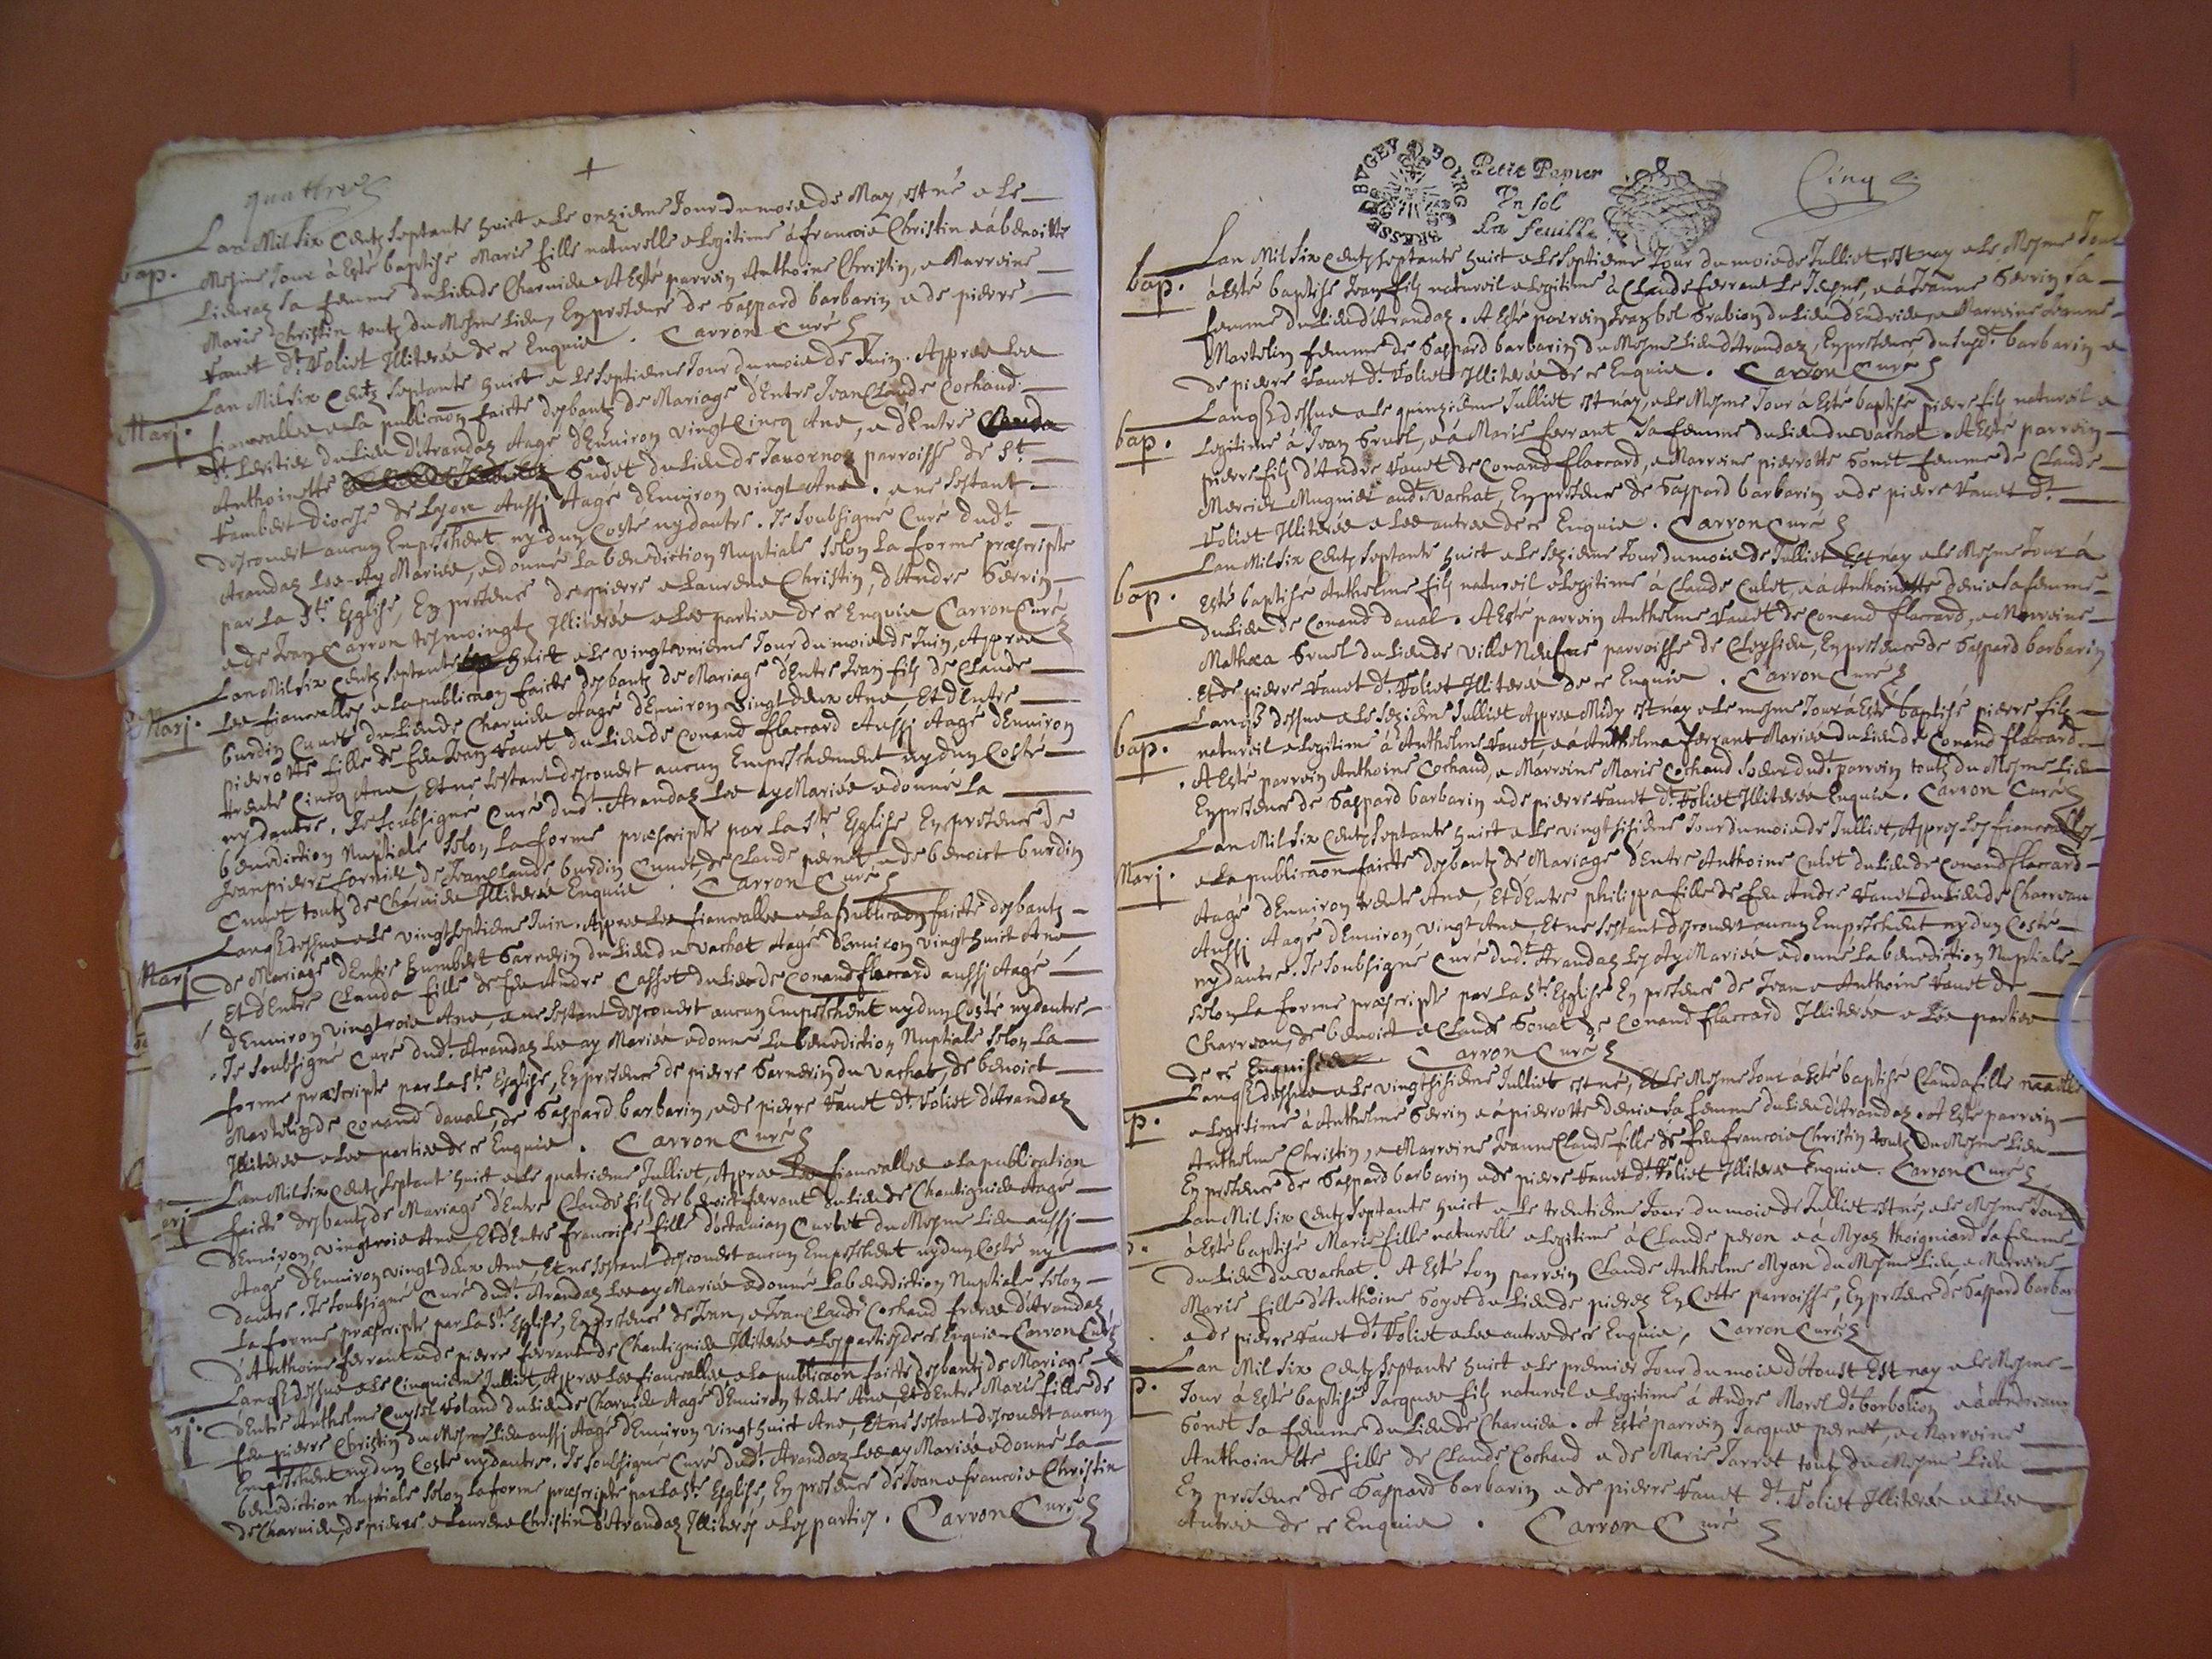 quattre
Lan Mil Six Centz Septante huict & le onzieme Jour du mois de May, est né & le
bap. Mesme Jour à Esté baptisé Marie fille naturelle & legitime à francois Christin & à benoitte
sa femme du lieu de Charvieu A Esté parrein Anthoine Christin, & Marreine
Marie Christin toutz du Mesme lieu, En presence de Gaspard barbarin & de pierre
Vanet dt. Voliet Illiterés de ce Enquis. Carron Curé
Lan Mil Six Centz Septante huict & le Septieme Jour du mois de Juin. Appres les
Mari. fiancealles & la publicaon faicte des bantz de Mariage d'Entre Jean Claude Cochand
dt. du lieu d'Arandaz Aagé d'Environ vingt Cincq Ans, & d'Entre
Anthoinette Gudet du lieu de Tavornoz parroisse de St.
Rambert diocese de Lyon Aussi Aagé d'Environ vingt Ans. & ne sestant
descouvert aucun Empeschent ny d'un Costé ny d'autre. Je Soubsigné Curé dudt.
Arandaz les Ay Mariés, & donné la benediction Nuptiale Selon la forme præscripte
par la Ste. Esglise, En presence de pierre & Laurens Christin, d'André Gerrin
& de Jean Carron tesmoingtz Illiterés & les parties de ce Enquis Carron Curé
Lan Mil Six Centz Septante huict & le vingt unieme Jour du mois de Juin, Appres
Mari. les fiancealles & la publicaon faicte des bantz de Mariage d'Entre Jean filz de Claude
burdin Cunet du lieu de Charvieu Aagé d'Environ Vingt deux Ans, Et d'Entre
pierrotte fille de feu Jean Vanet du lieu de Conand flaccard Aussi Aagé d'Environ
trente Cincq Ans, Et ne sestant descouvert aucun Empeschement ny d'un Costé
ny d'autre. Je Soubsigné Curé dudt. Arandaz les ay Mariés & donné la
benediction Nuptiale Selon la forme præscripte par la Ste. Esglise En presence de
Jean pierre fornier de Jean Claude burdin Cunet, de Claude pernet & de benoict burdin
Cunet toutz de Charvieu Illiterés Enquis. Carron Curé
Lan qs. dessus & le vingt Septieme Juin. Appres les fiancealles & la Publicaon faicte des bantz
Mari de Mariage d'Entre humbert Garnerin du lieu du Vachat Aagé d'Environ vingt huict Ans
Et d'Entre Clauda fille de feu André Casset du lieu de Conand flaccard aussi Aagé
d'Environ vingt trois Ans, & ne sestant descouvert aucun Empeschent ny d'un Costé ny d'autre
Je Soubsigné Curé dudt. Arandaz les ay Mariés & donné la benediction Nuptiale Selon la
forme præscripte par la Ste. Esglise, En presence de pierre Garnerin du Vachat, de benoict
Martelin de Conand daval, de Gaspard barbarin, & de pierre Vanet dt. Voliet d'Arandaz
Illiterés & les parties de ce Enquis. Carron Curé
Lan Mil Six Centz Septant huict & le quatrieme Julliet, Appres les fiancealles & la publication
ari faicte des bantz de Mariage d'Entre Claude filz de benoict ferrant du lieu de Chantignieu Aagé
d'Environ vingt trois Ans, Et d'Entre francoise fille d'Octavian Curbet du Mesme lieu aussi
Aagé d'Environ vingt deux Ans, Et ne sestant descouvert aucun Empeschent ny d'un Costé ny
d'autre. Je Soubsigné Curé dudt. Arandaz les ay Mariés & donné la benediction Nuptiale Selon
la forme præscripte par la Ste. Esglise, En presence de Jean, & Jean Claude Cochand freres d'Arandaz
d'Anthoine ferrant & de pierre ferrant de Chantignieu Illiterés & les parties de ce Enquis Carron Curé
Lan qs. dessus & le Cinquieme Julliet, Appres les fiancealles & la publicaon faicte des bantz de Mariage
ri. d'Entre Anthelme Voland du lieu de Charvieu Aagé d'Environ trente Ans, Et d'Entre Marie fille de
feu pierre Christin du Mesme lieu aussi Aagé d'Environ vingt huict Ans, Et ne sestant descouvert aucun
Empeschent ny d'un Costé ny d'autre. Je Soubsigné Curé dudt. Arandaz les ay Mariés & donné la
benediction Nuptiale Selon la forme præscripte par la Ste. Esglise, En presence de Jean & francois Christin
de Charvieu, de pierre, & Laurens Christin d'Arandaz Illiterés & les parties. Carron Curé
BRESSE BVGEY BOVRG
Petit Papier
Vn sol
La feuille
Cinq
Lan Mil Six Centz Septante huict & le Septieme Jour du mois de Julliet, est nay & le Mesme Jour
bap. à Esté baptisé Jean filz natureil & legitime à Claude ferrant le Jeune, & à Jeanne Gerrin sa
femme du lieu d'Arandaz. A Esté parrein du lieu & Marreine Jeanne
Martelin femme de Gaspard barbarin du Mesme lieu d'Arandaz, En presence du sudt. barbarin &
de pierre Vanet dt. Voliet Illiterés de ce Enquis. Carron Curé
Lan qs. dessus & le quinzieme Julliet est nay, & le Mesme Jour à Esté baptisé pierre filz naturel &
bap. legitime à Jean Gruel, & à Marie ferrant sa femme du lieu du Vachat. A Esté parrein
pierre filz d'André Vanet de Conand flaccard, & Marreine pierrotte Gonet femme de Claude
Mercier Mugnier audt. Vachat, En presence de Gaspard barbarin & de pierre Vanet dt.
Voliet Illiterés & les autres de ce Enquis. Carron Curé
Lan Mil Six Centz Septante huict & le Sezieme Jour du mois de Julliet Est nay & le Mesme Jour à
bap. Esté baptisé Anthelme filz natureil & legitime à Claude Culet, & à Anthoinette denis sa femme
du lieu de Conand daval. A Esté parrein Anthelme Vanet de Conand flaccard, & Marreine
Mathea Gruel du lieu de Ville Neufve parroisse de Cleysieu, En presence de Gaspard barbarin
Et de pierre Vanet dt. Voliet Illiterés de ce Enquis. Carron Curé
Lan qs. dessus & le Sezieme Julliet Appres Midy est nay & le mesme Jour à Esté baptisé pierre filz
bap. natureil & legitime à Anthelme Vanet & à Anthelma ferrant Mariés du lieu de Conand flaccard
A Esté parrein Anthoine Cochand, & Marreine Marie Cochand soeur dudt. parrein toutz du Mesme lieu
En presence de Gaspard barbarin & de pierre Vanet dt. Voliet Illiterés Enquis. Carron Curé
Lan Mil Six Centz Septante huict & le vingt sixieme Jour du mois de Julliet, Appres les fiancealles
Mari. & la publicaon faicte des bantz de Mariage d'Entre Anthoine Culet du lieu de Conand flaccard
Aagé d'Environ trente Ans, Et d'Entre philippa fille de feu André Vanet du lieu de Charveau
Aussi Aagé d'Environ vingt Ans, Et ne sestant descouvert aucun Empeschent ny d'un Costé
ny d'autre. Je Soubsigné Curé dudt. Arandaz les Ay Mariés & donné la benediction Nuptiale
Selon la forme præscripte par la Ste. Esglise En presence de Jean & Anthoine Vanet de
Charveau, de benoict & Claude Gonet de Conand flaccard Illiterés & les parties
de ce Enquises Carron Curé
Lan qs. dessus & le vingt sixieme Julliet est né, Et le Mesme Jour à Esté baptisé Clauda fille
p. & legitime à Anthelme Gerrin & à pierrotte denis sa femme du lieu d'Arandaz. A Esté parrein
Anthelme Christin, & Marreine Jeanne Claude fille de feu francois Christin toutz du Mesme lieu
En presence de Gaspard barbarin & de pierre Vanet dt. Voliet Illiterés Enquis. Carron Curé
Lan Mil Six Centz Septante huict & le trentieme Jour du mois de Julliet est né, & le Mesme Jour
p. à Esté baptisé Marie fille naturelle & legitime à Claude peron & à Myaz Thoigniard sa femme
du lieu du Vachat. A Esté son parrein Claude Anthelme Myan du Mesme lieu, & Marreine
Marie fille d'Anthoine Goyet du lieu de pierez En Cette parroisse, En presence de Gaspard barbar
& de pierre Vanet dt. Voliet & les autres de ce Enquis, Carron Curé
Lan Mil Six Centz Septante huict & le premier Jour du mois d'Aoust Est nay & le Mesme
p. Jour à Esté baptisé Jacques filz natureil & legitime à André Morel dt. borbolion & à
Gonet sa femme du lieu de Charvieu. A Esté parrein Jacques pernet, & Marreine
Anthoinette fille de Claude Cochand & de Marie Jarret toutz du Mesme lieu
En presence de Gaspard barbarin & de pierre Vanet dt. Voliet Illiterés & les
Autres de ce Enquis. Carron Curé